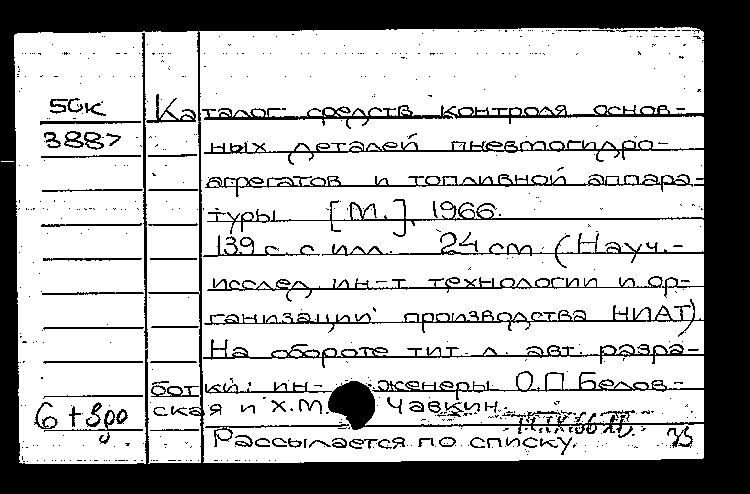 50к Каталог средств контроля основ-
3887 ных деталей пневмогидро-
агрегатов и топливной аппара-
туры [М.], 1966.
139 с. с илл. 24 см (Науч.-
исслед. ин-т технологии и ор-
ганизации производства НИАТ).
На обороте тит. л. авт. разра-
ботки: ин-женеры О.П. Белов-
ская и Х.М. Чавкин.
Рассылается по списку.